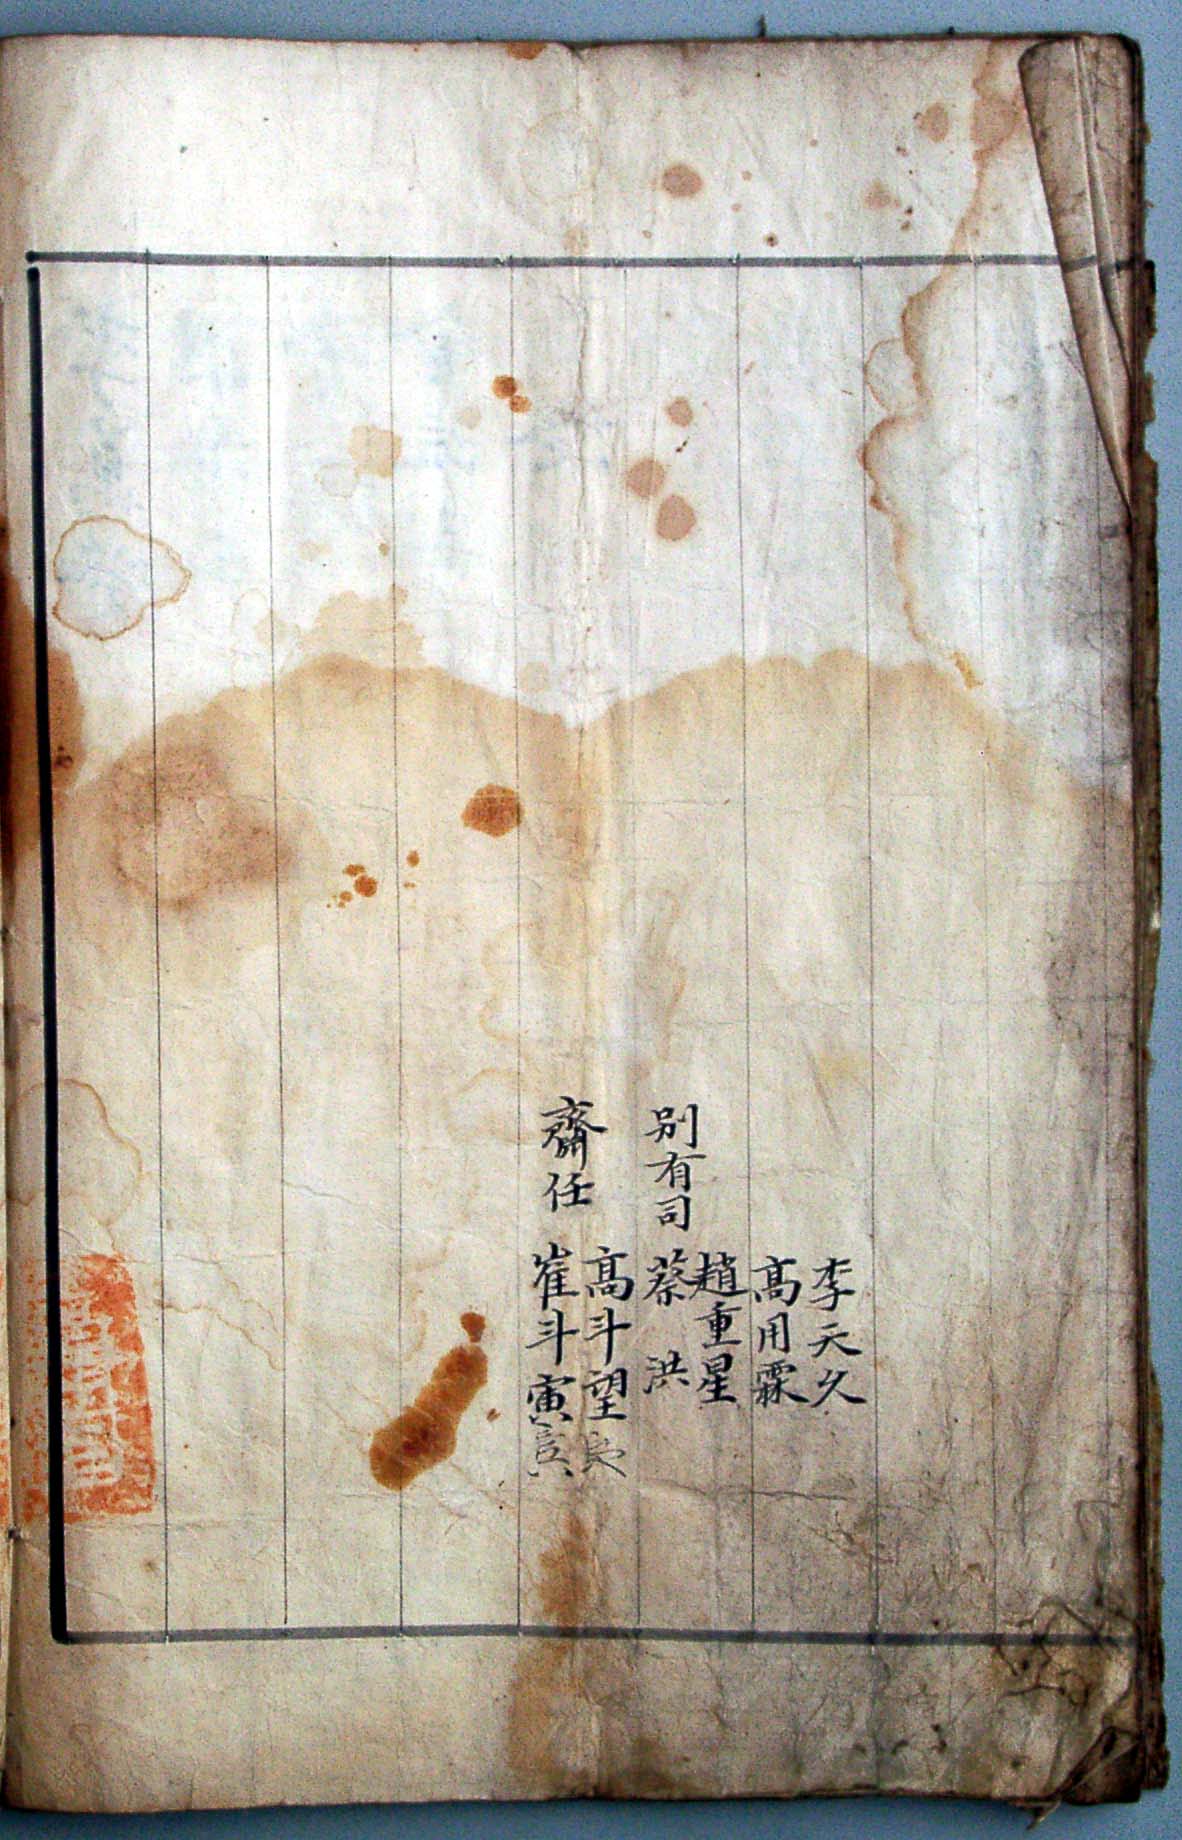 李天久
高用霖
別有司 趙重星
蔡洪
齋任 高斗望
崔斗寅